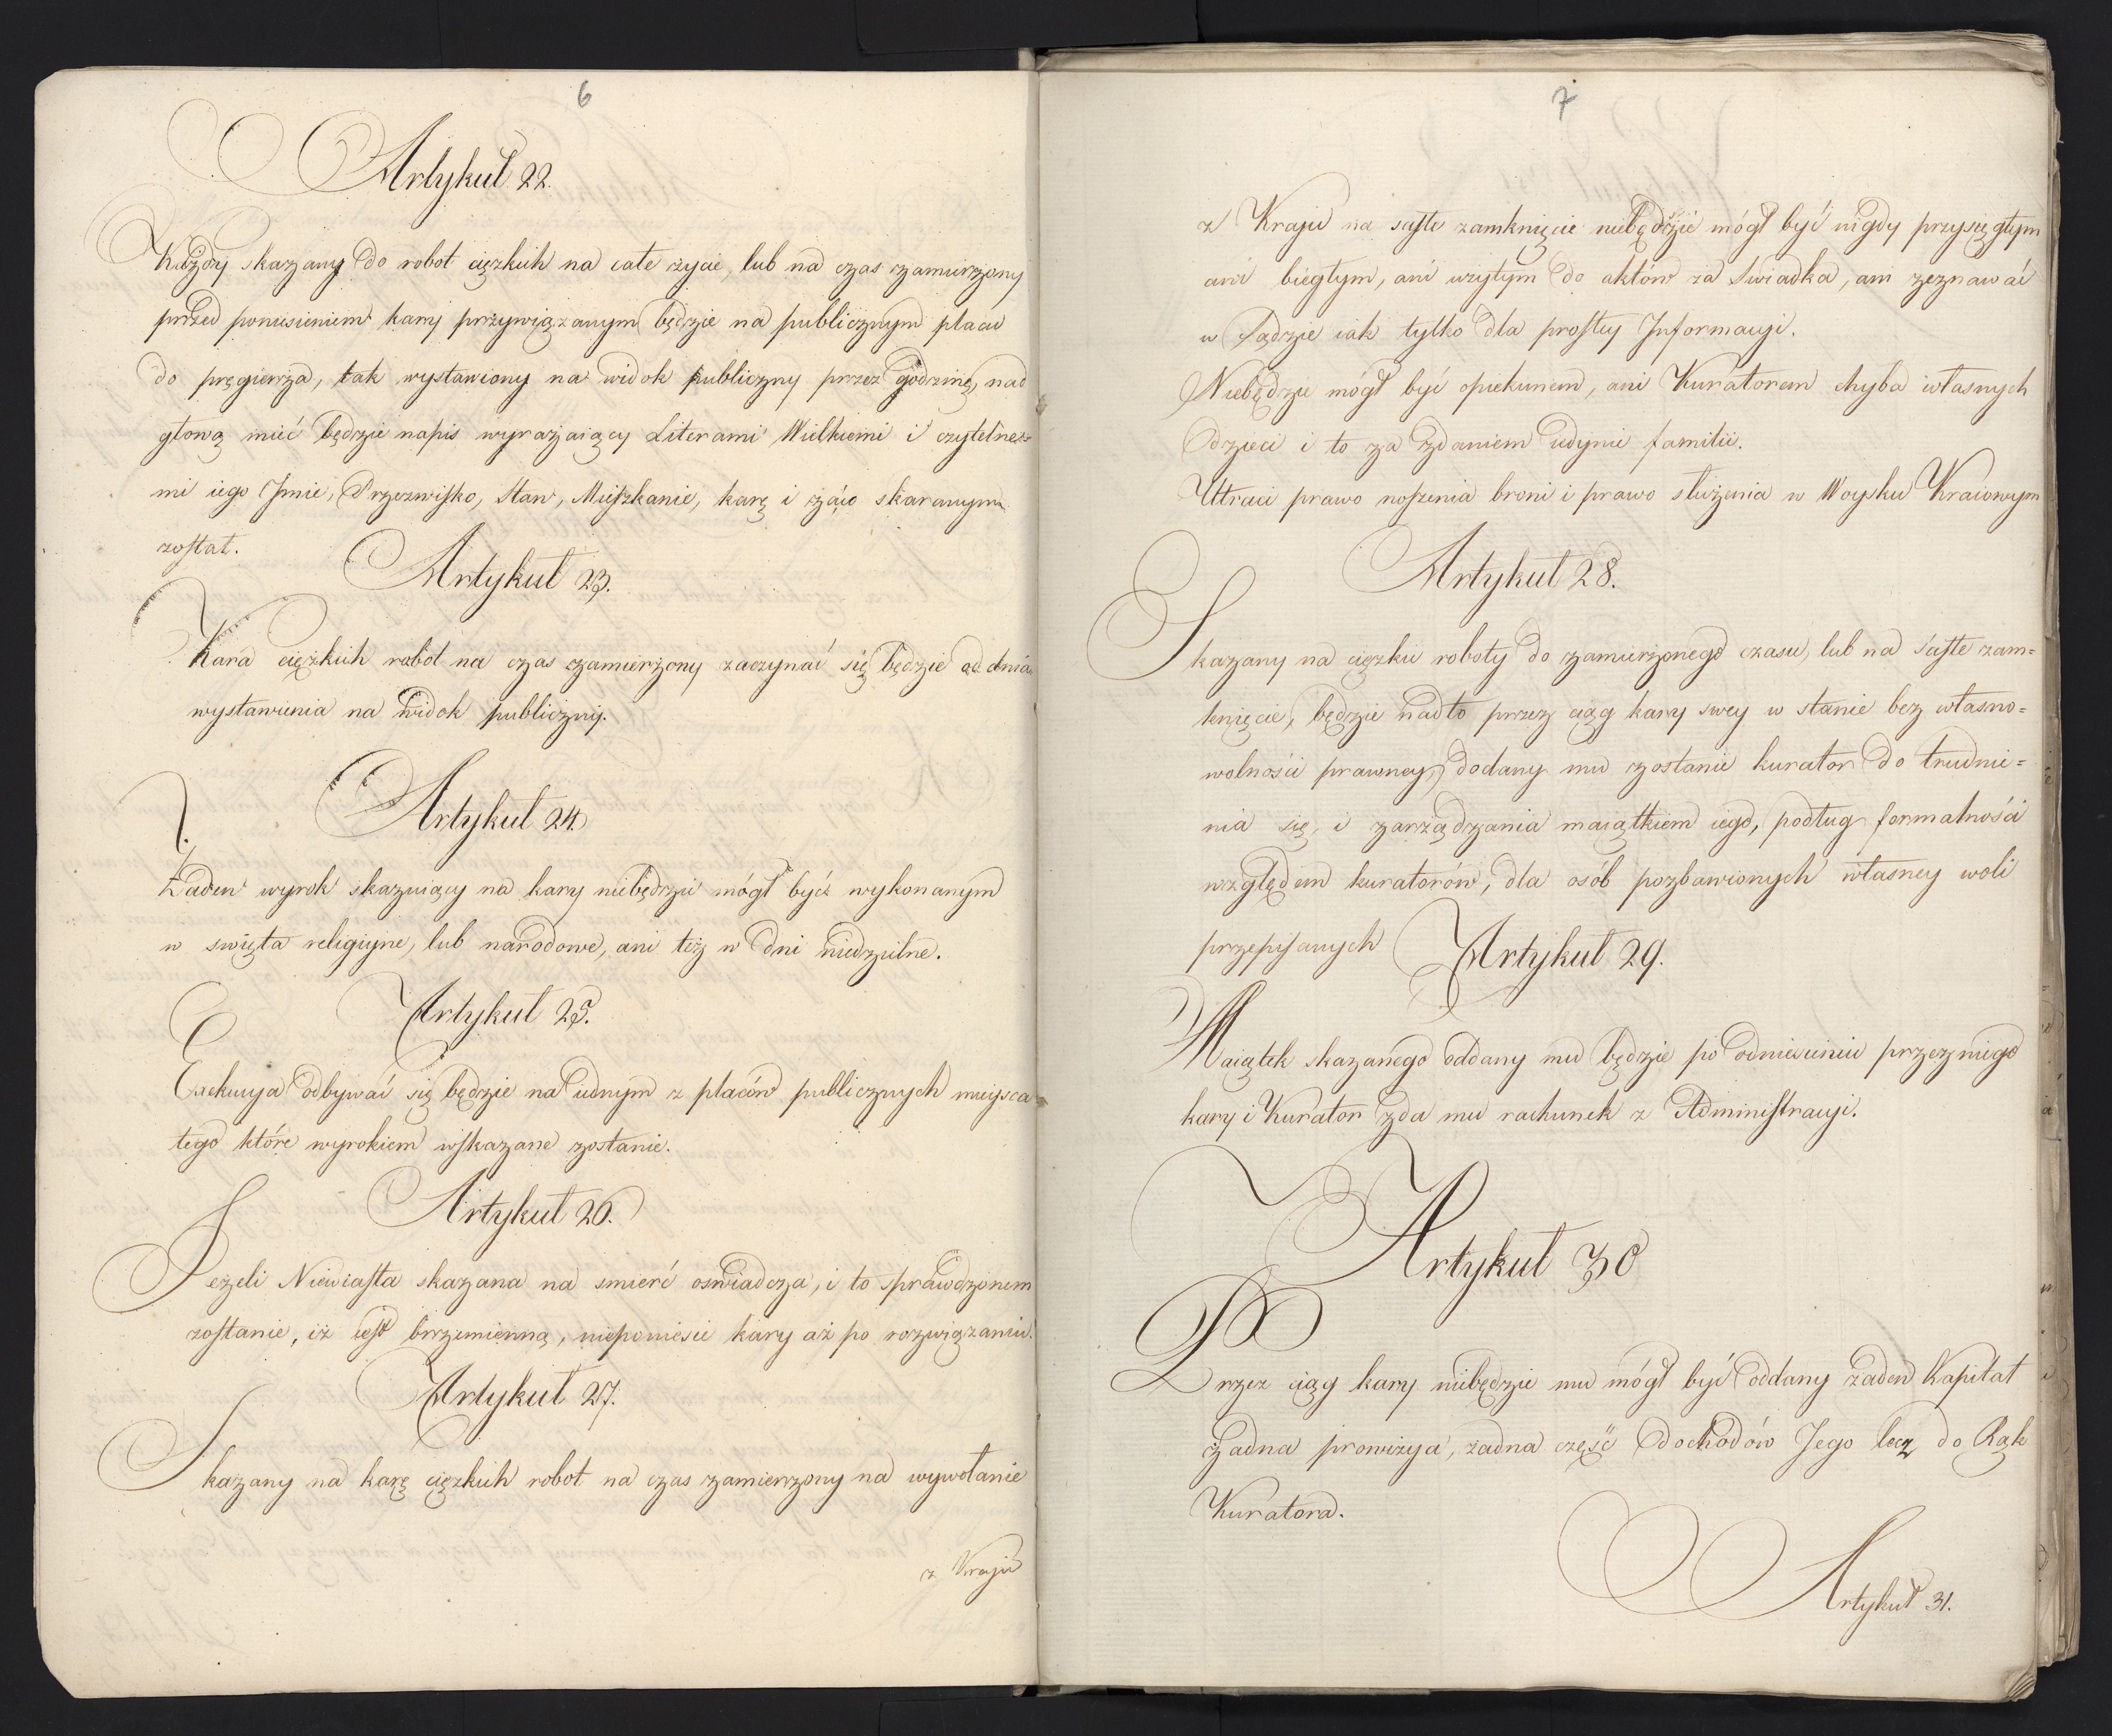 6
Artykuł 22.
Każdy skazany do robot cięzkich na całe życie, lub na czas zamierzony
przed poniesieniem kary przywiązanym będzie na publicznym placu
do pręgierza, tak wystawiony na widok publiczny przez godzinę, nad
głową mieć będzie napis wyrażaiący Literami Wielkiemi i czytelne=
mi iego Jmie, Przezwisko, Stan, Mieszkanie, karę i zá co skaranym
został.
Artykuł 23.
Kara ciężkich robot na czas zamierzony zaczynać się będzie od dnia
wystawienia na widok publiczny.
Artykuł 24.
Żaden wyrok skazuiący na kary niebędzie mógł być wykonanym
w swięta religiyne, lub narodowe, ani też w dni niedzielne.
Artykuł 25.
Exekucya odbywać się będzie na iednym z placów publicznych mieysca
tego które wyrokiem wskazane zostanie.
Artykuł 26.
Jeżeli Niewiasta skazana na smierć oswiadcza, i to sprawdzonem
zostanie, iż iest brzemienną, nieponiesie kary aż po rozwiązaniu.
Artykuł 27.
Skazany na karę cięzkich robot na czas zamierzony na wywołanie
z Kraju
7
z Kraju na saste zamknięcie niebędzie mógł być nigdy przysięgłym
ani biegłym, ani użytym do aktów za Swiadka, ani zeznawać
w Sądzie iak tylko dla prostey Informacyi.
Niebędzie mógł być opiekunem, ani Kuratorem chyba własnych
dzieci i to za zdaniem iedynie familii.
Utraci prawo noszenia broni i prawo służenia w Woysku Kraiowym
Artykuł 28.
Skazany na cięzkie roboty do zamierzonego czasu, lub na saste zam=
knięcie, będzie nadto przez ciąg kary swey w stanie bez własno=
wolności prawney, dodany mu zostanie kurator do trudnie=
nia się, i zarządzania maiątkiem iego, podług formalności
względem kuratorów, dla osób pozbawionych własney woli
przepisanych
Artykuł 29.
Maiątek skazanego oddany mu będzie po odniesieniu przez niego
kary i Kurator zda mu rachunek z Administracyi.
Artykuł 30
Przez ciąg kary niebędzie mu mógł być oddany żaden Kapitał
żadna prowizya, żadna część dochodów Jego lecz do Rąk
Kuratora.
Artykuł 31.